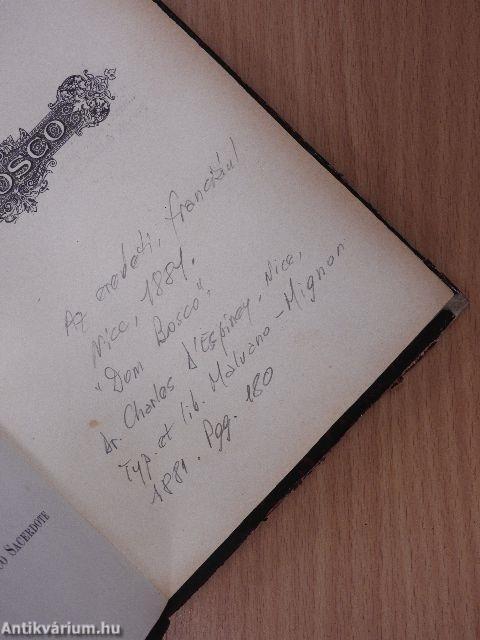 OSCO
Az eredeti, franciául
Nice, 1881.
"Dom Bosco",
Dr. Charles D'Espiney, Nice,
Typ. et lib. Malvano-Mignon
1881. Pgg. 180
SACERDOTE
Antikvárium.hu